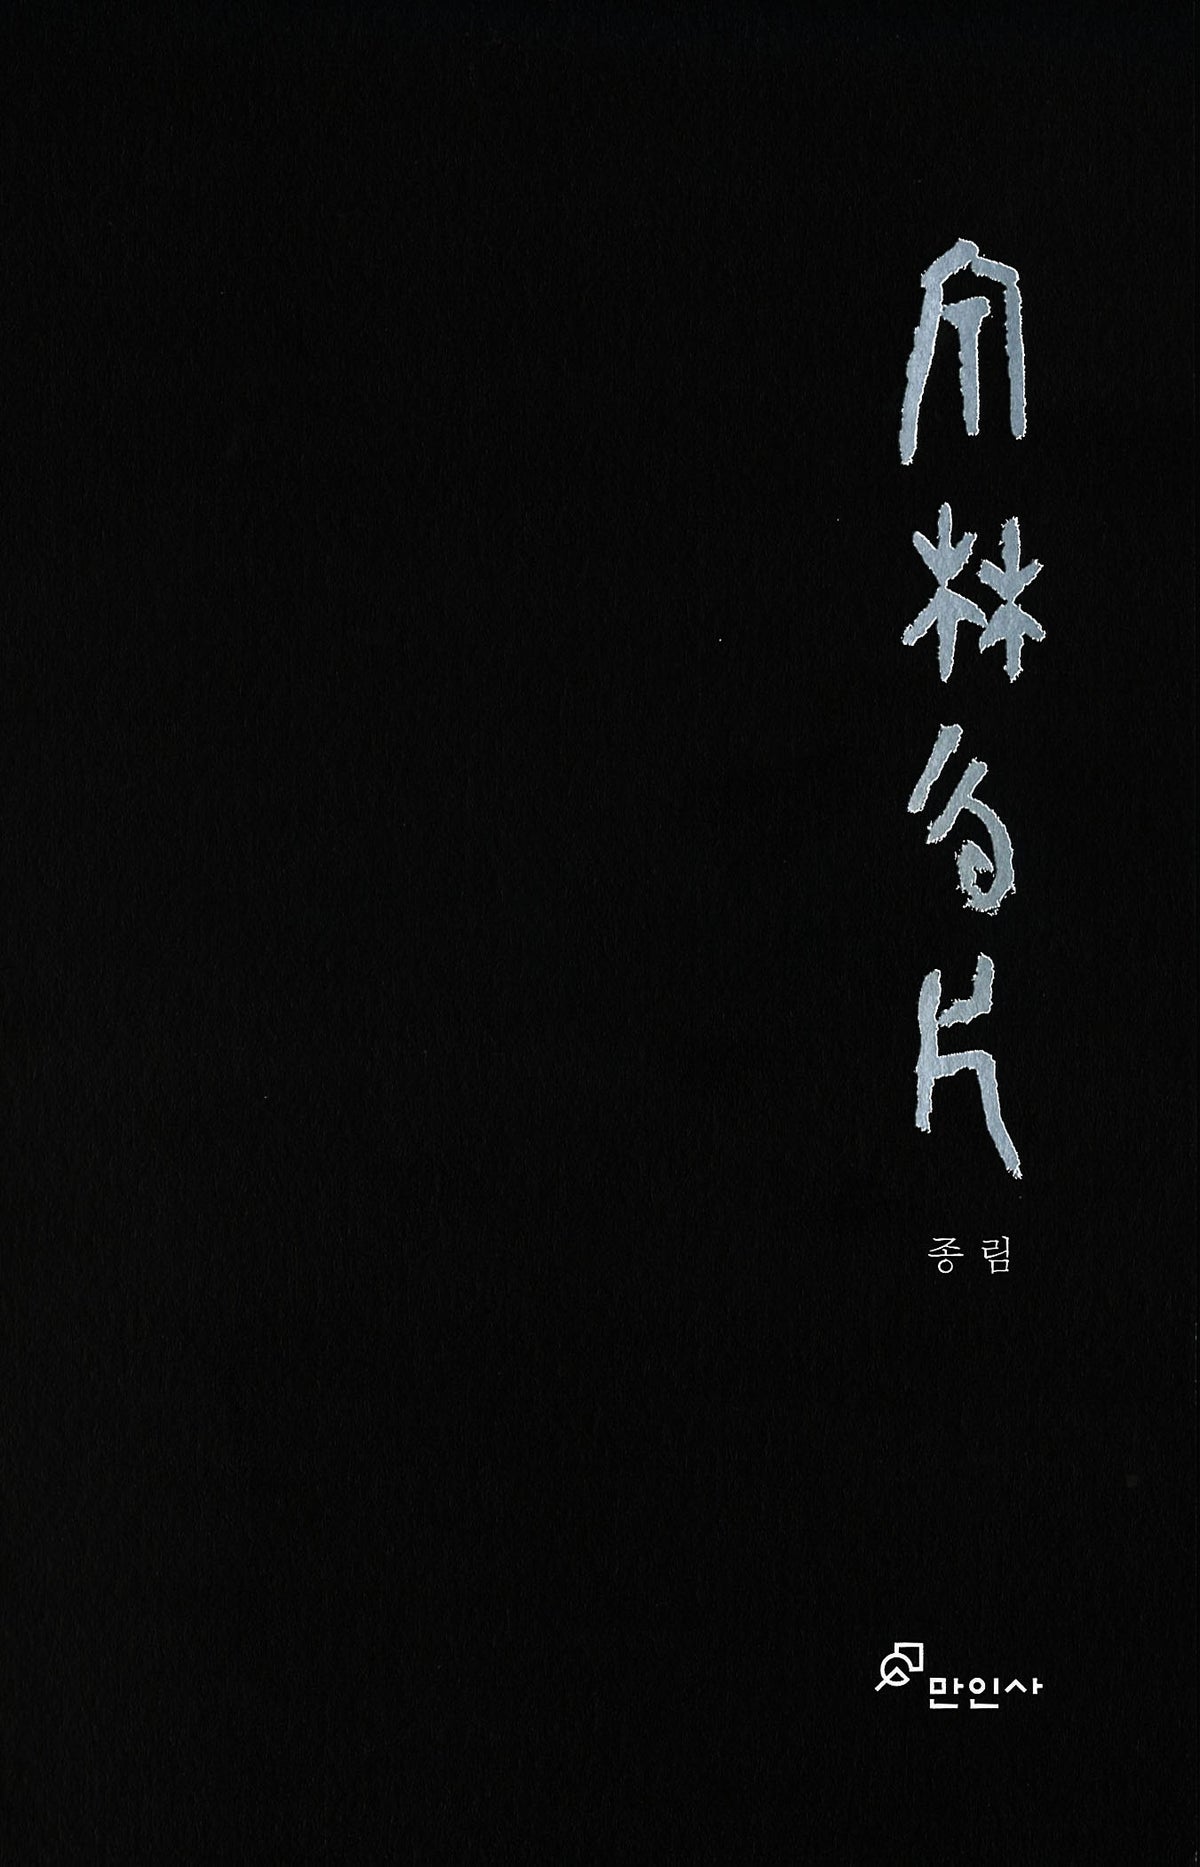 宗林勿片
종림
만인사